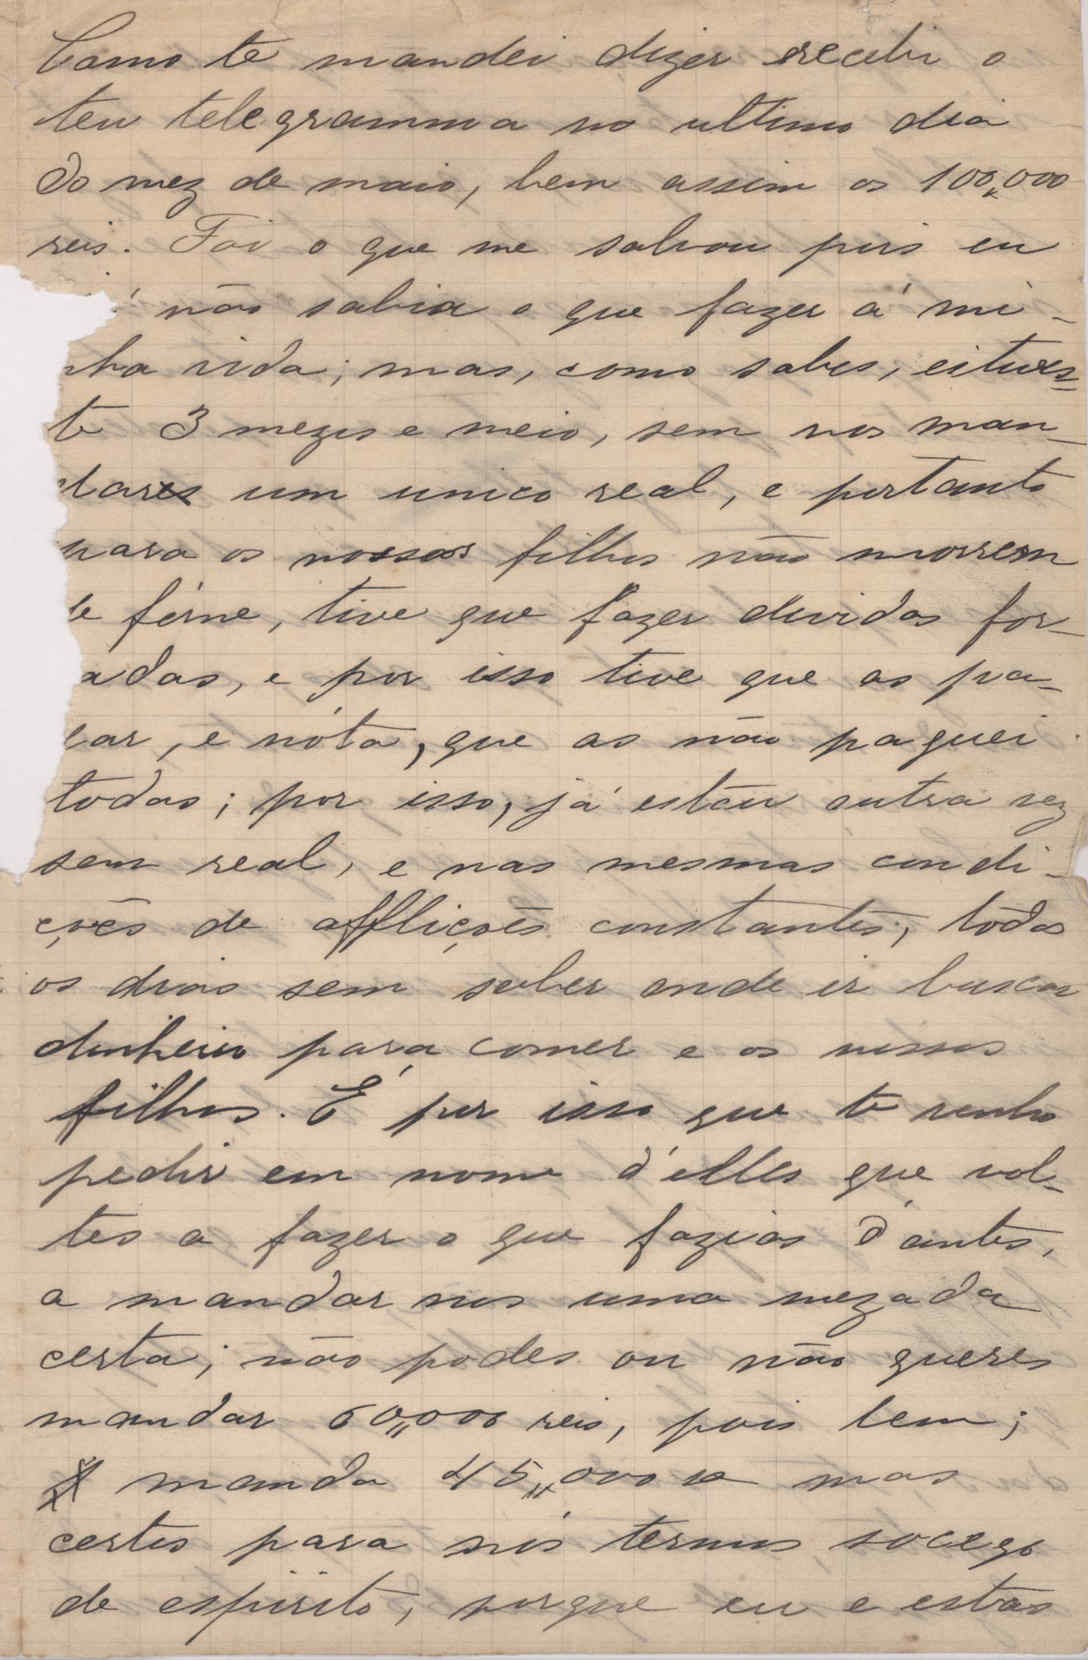 Como te mandei dizer recebi o
teu telegramma no ultimo dia
do mez de maio, bem assim os 100,,000
reis. Foi o que me salvou pois eu
não sabia o que fazer á mi-
nha vida; mas, como sabes, estives-
te 3 mezes e meio, sem nos man-
dares um unico real, e portanto
para os nossos filhos não morrerem
de fóme, tive que fazer dividas for-
adas, e por isso tive que as pa-
gar, e nóta, que as não paguei
todas; por isso, já estou outra vez
sem real, e nas mesmas condi-
ções de afflições constantes, todos
os dias sem saber onde ir buscar
dinheiro para comer e os nossos
filhos. É por isso que te venho
pedir em nome d'elles que vol-
tes a fazer o que fazias d'antes,
a mandar nos uma mezada
certa; não podes ou não queres
mandar 60,,000 reis, pois bem;
manda 45,,000 rs mas
certos para nós termos socego
de espirito, porque eu e estas